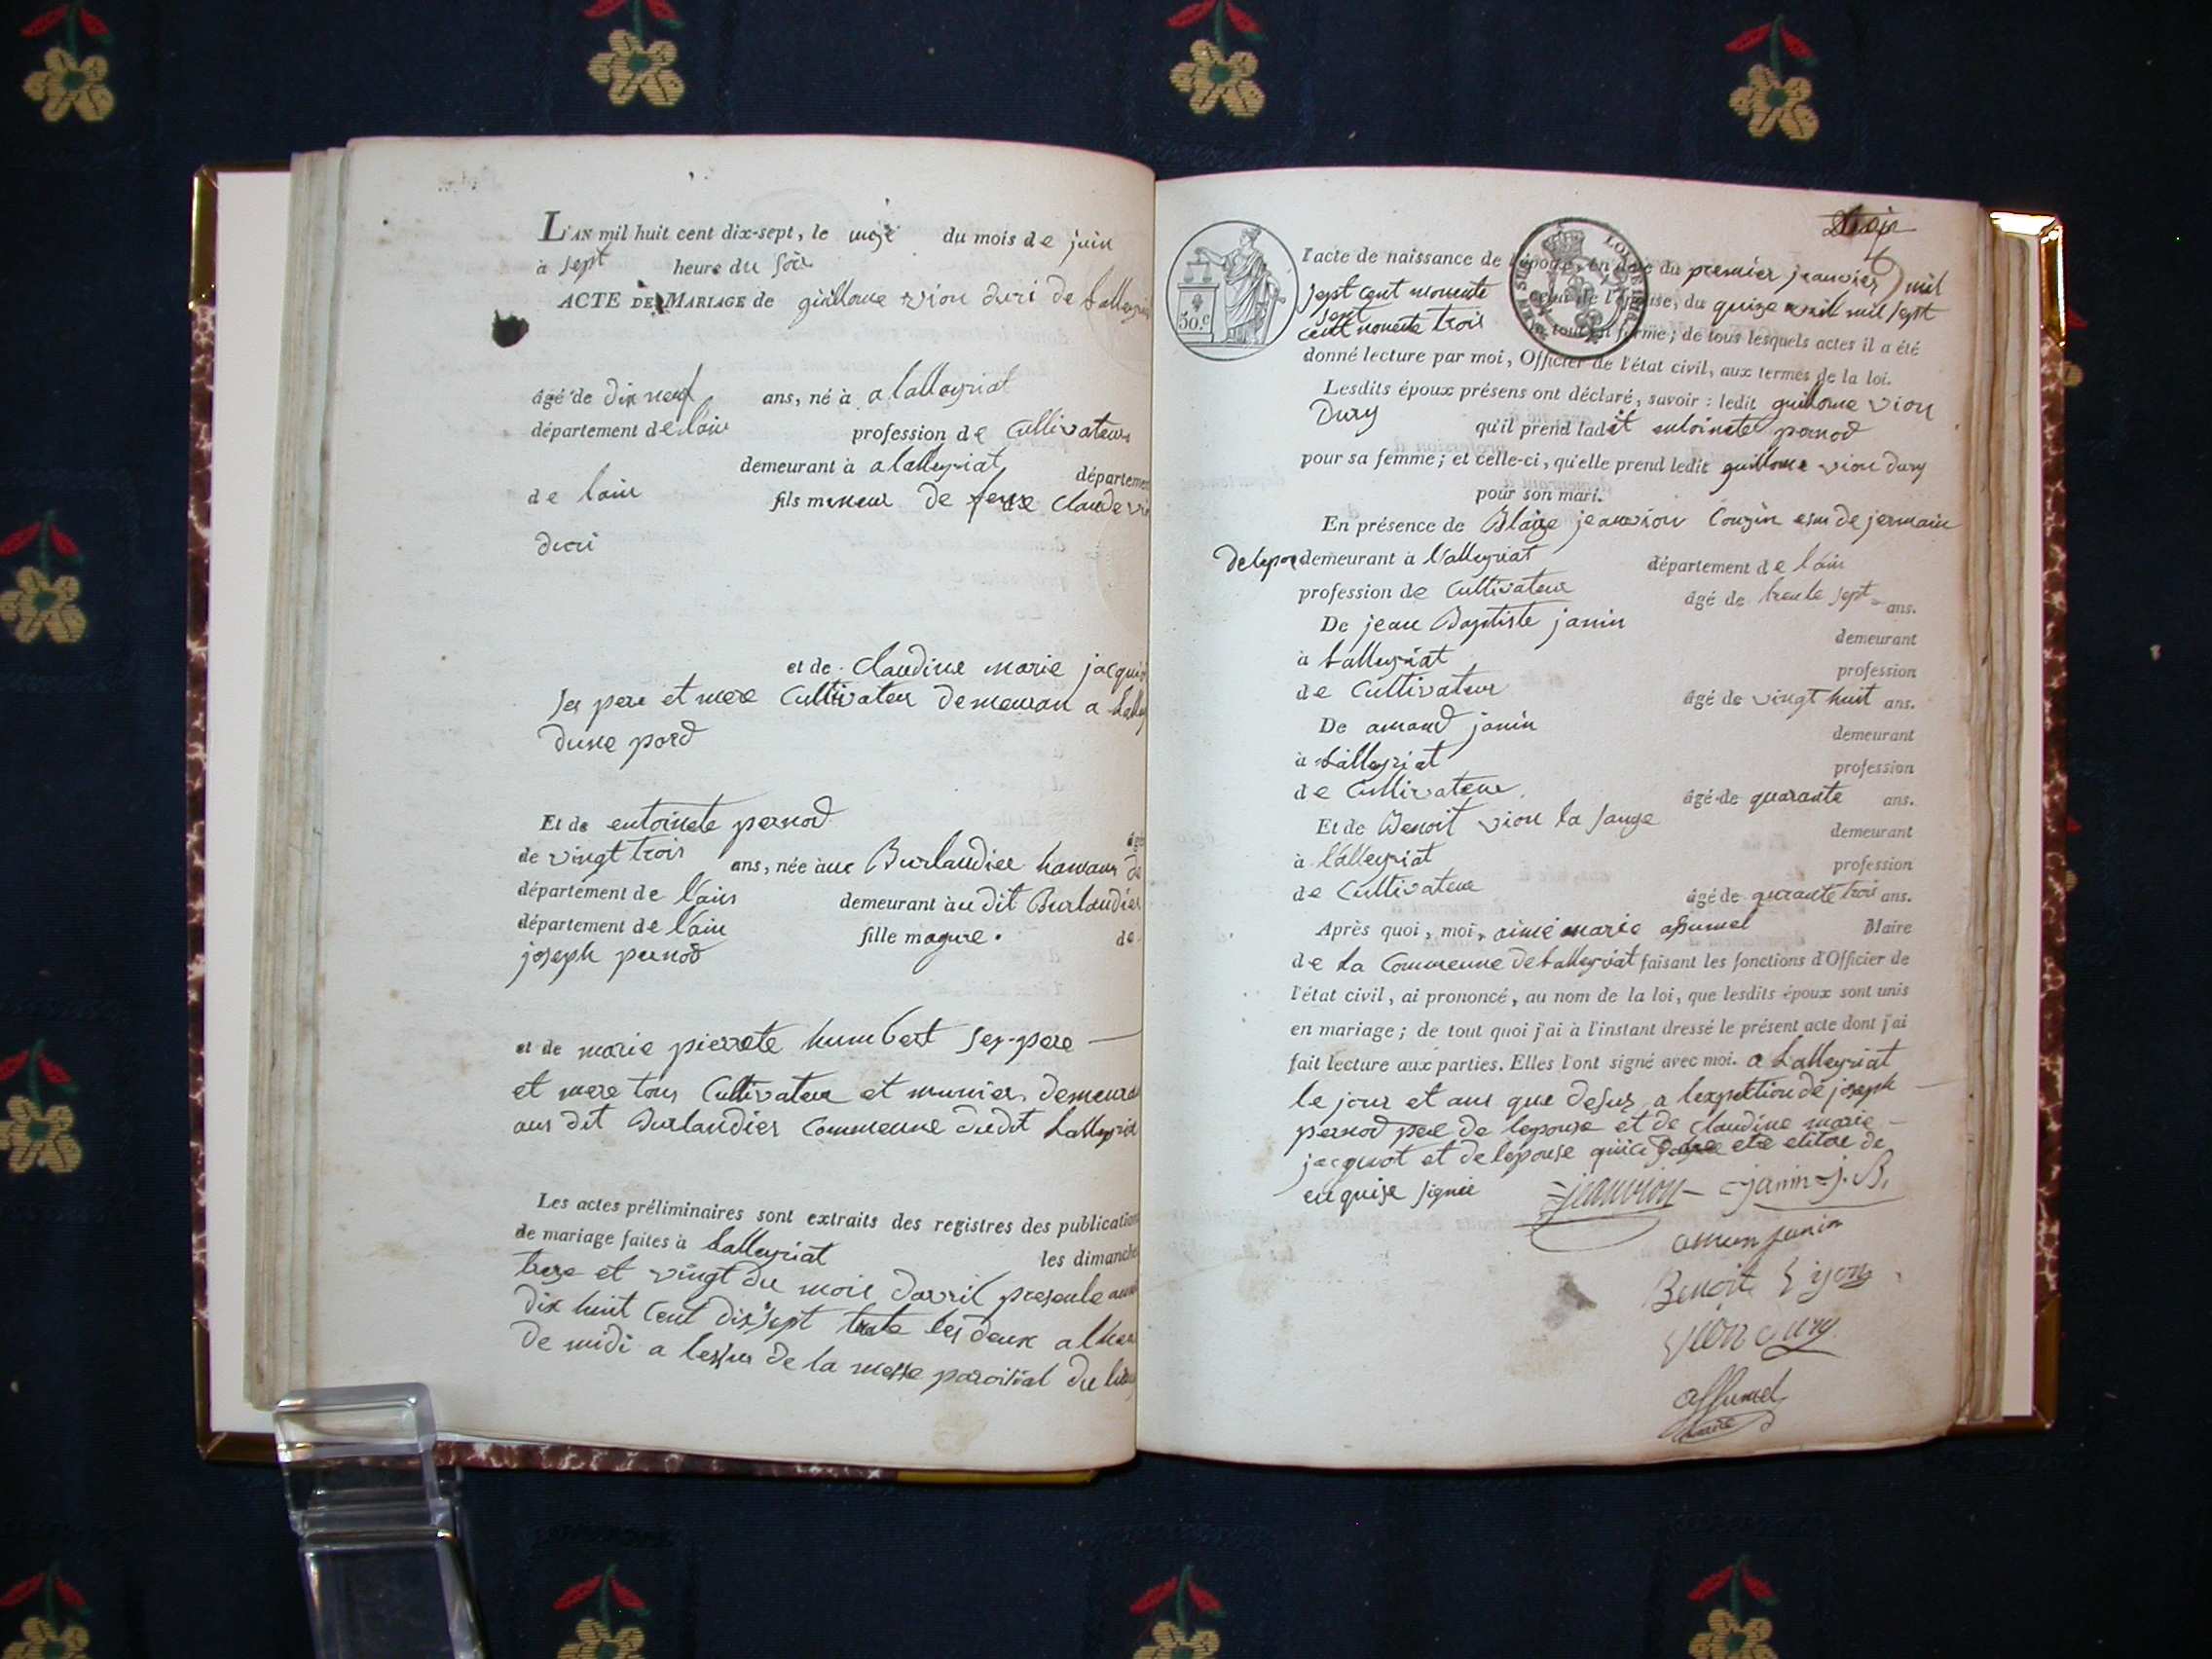 L'AN mil huit cent dix-sept, le onze du mois de juin
à sept heure du soir
ACTE DE MARIAGE de guillome vion duri de
âgé de dix neuf ans, né à a lalleyriat
département de lain profession de Cultivateur
demeurant à a lalleyriat département
de lain fils mineur de feux Claude
duri
et de Claudine marie
ses pere et mere Cultivateur demeuran a
dune pard
Et de entoinete pernod
de vingt trois ans, née à aux Burlandier hamaux de
département de l'ain demeurant à audit Burlandier
département de l'ain fille magure. de
joseph pernod
et de marie pierrete humbert ses pere
et mere tous Cultivateur et munier
aus dit Burlandier Commeune dudit Lalleyriat
Les actes préliminaires sont extraits des registres des publications
de mariage faites à Lalleyriat les dimanches
treze et vingt du mois davril presente
dix huit Cent dix sept toute les deux
de midi a de la messe paroitial du lieu
l'acte de naissance de l'époux, en date du premier jeanvier mil
sept cent nonente celui de l'épouse, du quize avril mil sept
sept
cent nonente trois le tout en forme; de tous lesquels actes il a été
donné lecture par moi, Officier de l'état civil, aux termes de la loi.
Lesdits époux présens ont déclaré, savoir: ledit guillome vion
Dury qu'il prend ladit entoinete pernod
pour sa femme; et celle-ci, qu'elle prend ledit guillome vion dury
pour son mari.
En présence de Blaize jeanvion Couzin de jermain
demeurant à l'alleyriat département de l'ain
profession de Cultivateur âgé de trente sept ans.
De jean Baptiste janin
demeurant
à Lalleyriat
profession
de Cultivateur âgé de vingt huit ans.
De amand janin
demeurant
à Lalleyriat
profession
de Cultivateur âgé de quarante ans.
Et de Benoit vion la sauge
demeurant
à l'alleyriat
profession
de Cultivateur âgé de qurante trois ans.
Après quoi, moi, aimé marie assumel Maire
de La Commeune de Lalleyriat faisant les fonctions d'Officier de
l'état civil, ai prononcé, au nom de la loi, que lesdits époux sont unis
en mariage; de tout quoi j'ai à l'instant dressé le présent acte dont j'ai
fait lecture aux parties. Elles l'ont signé avec moi. a Lalleyriat
le jour et ans que desus a de joseph
pernod pere de lepouse et de Claudine marie
jacquot et de lepouse
enquise signie jeanvion janin j. B.
janin
Benoit
Vion Dury
assumel
maire
50.C